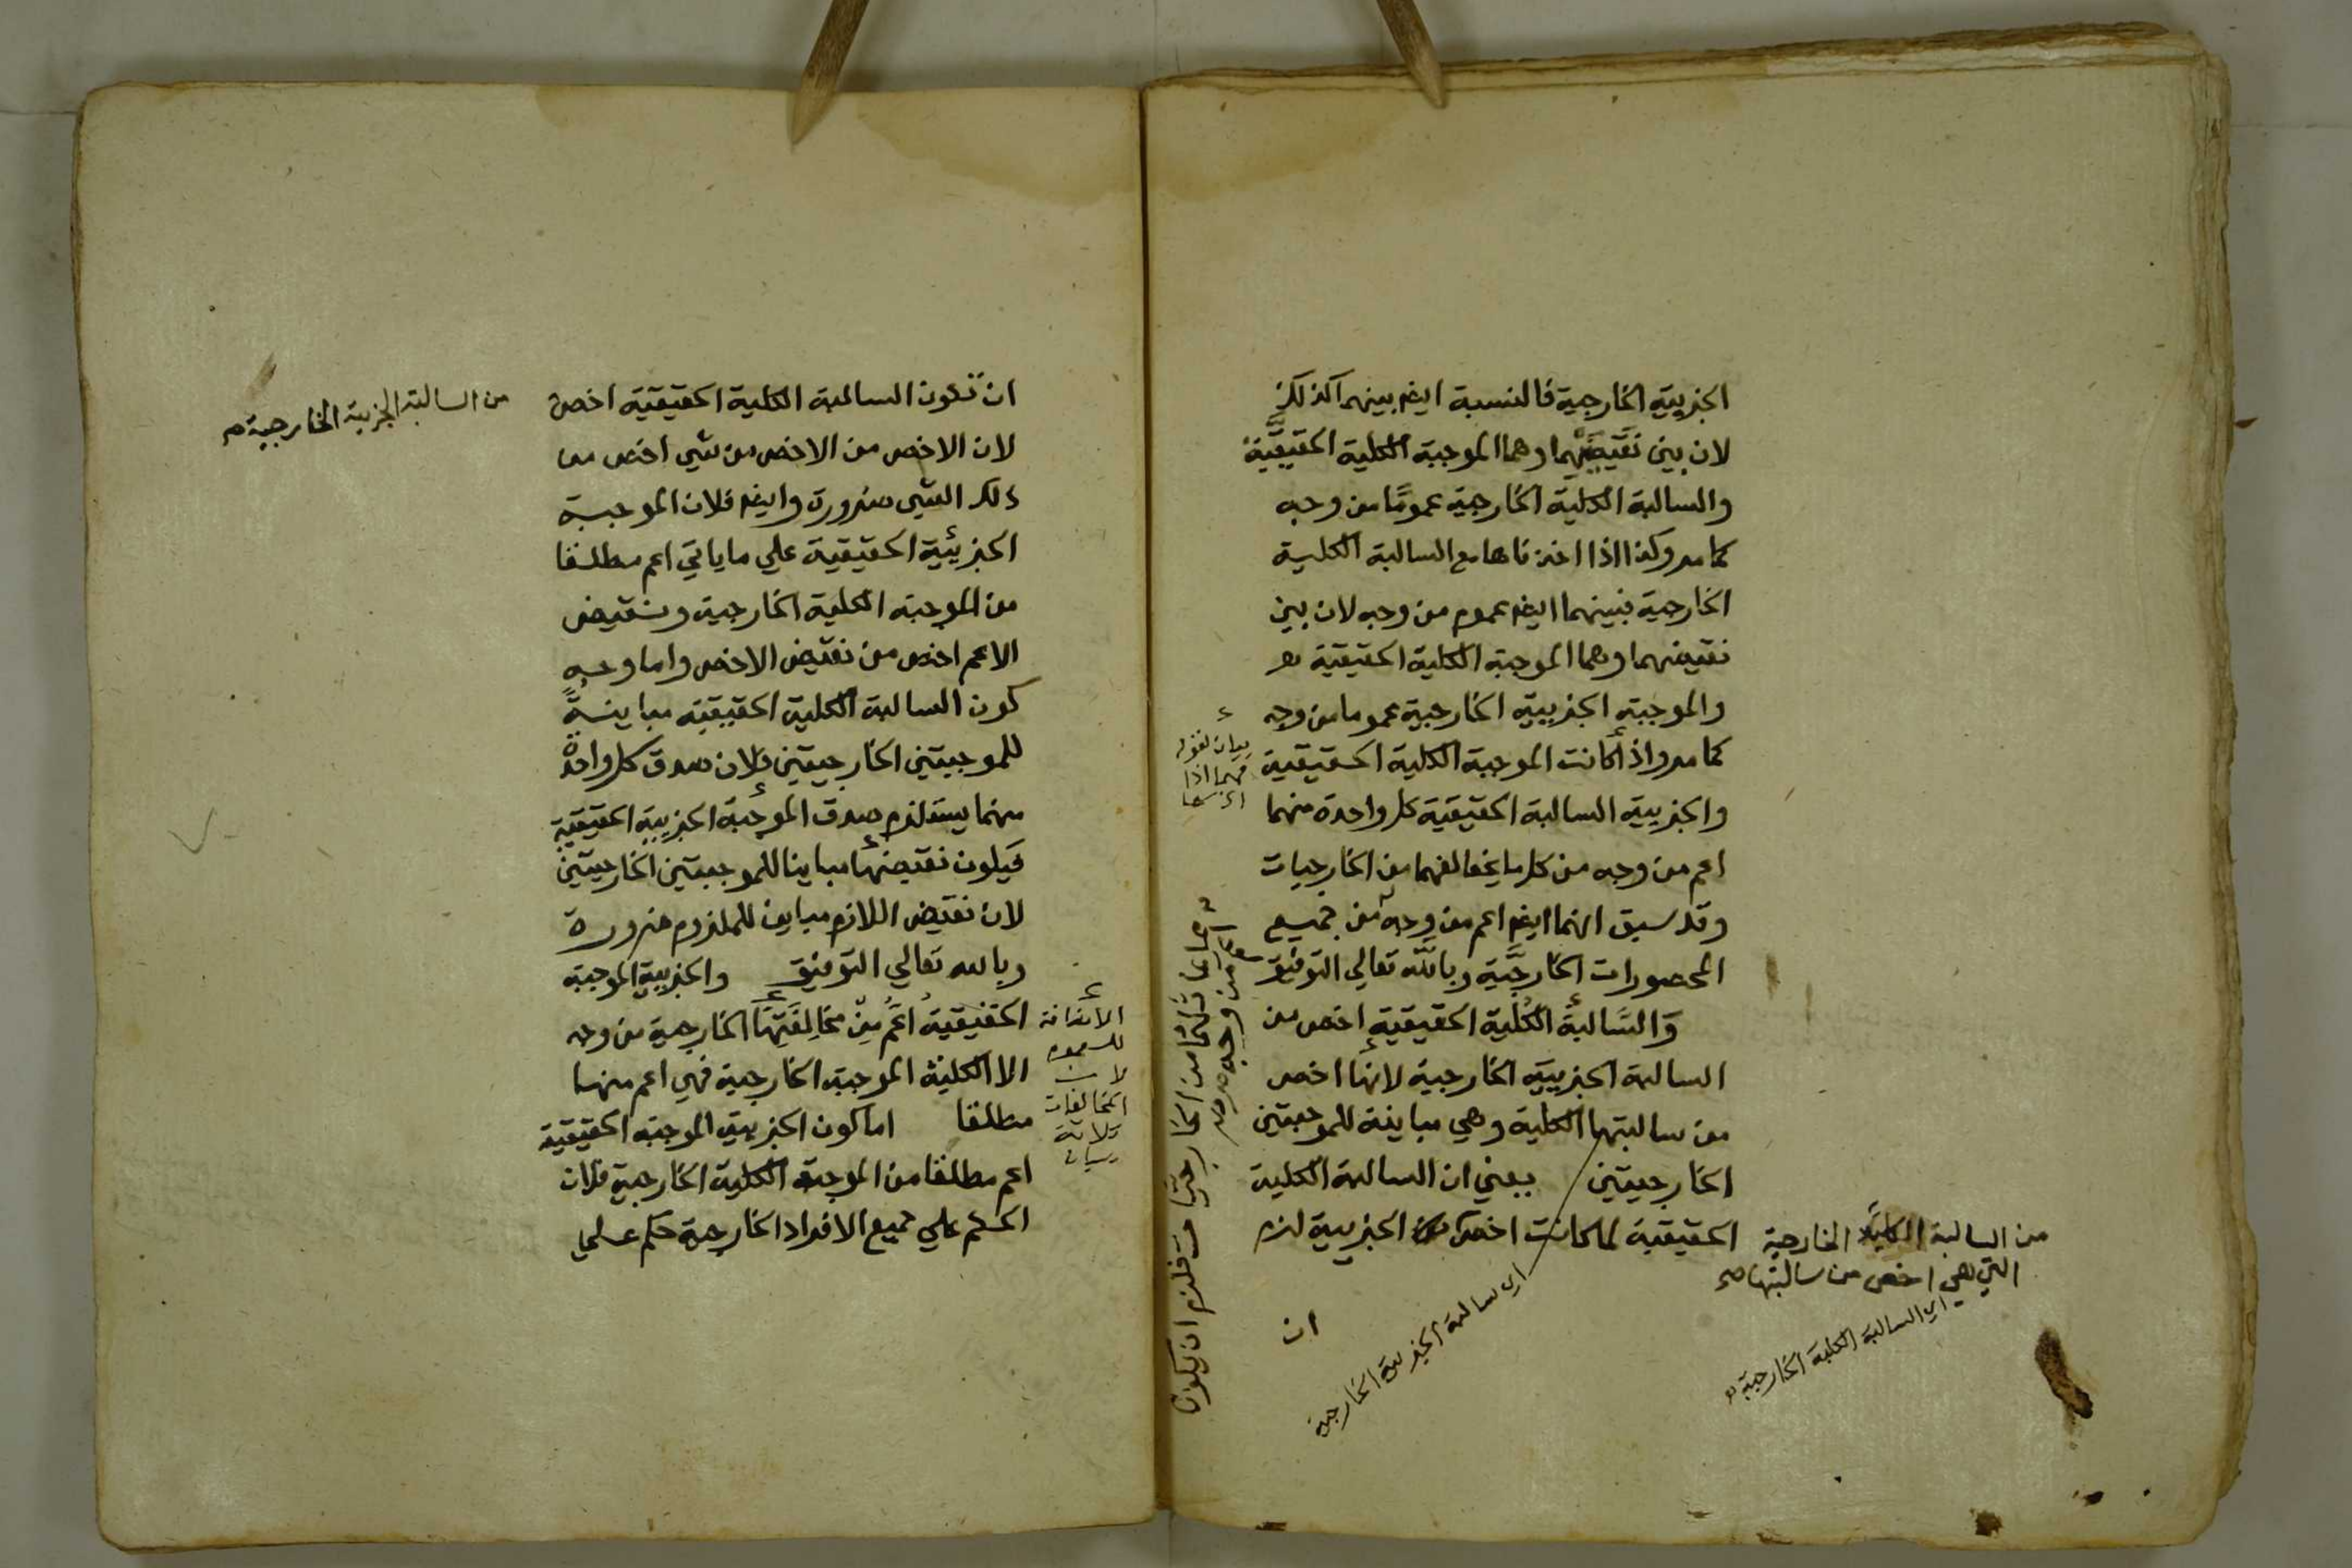 الجزييه الخارجية فالنسبة ايضا بينهما كذلك
لان بين نقيضيهما وهما الموجبة الكلية الحقيقية
والسالبة الكلية الخارجية عمومًا من وجه
كما مر وكذا اذا اخذناها مع السالبة الكلية
الخارجية فبينهما ايضا عموم من وجه لان بين
نقيضهما وهما الموجبة الكلية الحقيقية
والموجبة الجزيية الخارجية عموما من وجه
كما مر واذا كانت الموجبة الكلية الحقيقية
والجزيية السالبة الحقيقية كل واحدة منهما
اعم من وجه من كل ما يخالفهما من الخارجيات
وقد سبق انهما ايضا اعم من وجه من جميع
المحصورات الخارجية وبالله تعالى التوفيق
وَالسَّالبةُ الكلية الحقيقية اخص من
السالبة الجزييه الخارجية لانها اخص
من سالبتها الكلية وهي مباينة للموجبتين
الخارجيتين يعني ان السالبة الكلية
الحقيقية لما كانت اخص من الجزيية لزم
من السالبة الكلية الخارجية
التي هي اخص من سالبتها صح
اي السالبة الكلية الخارجية
اي سالبة الجزيية الخارجية
ان
بيان لقوله
فلزم ان يكون
ان تكون السالبة الكلية الحقيقية اخص
من السالبة الجزيية الخارجية
لان الاخص من الاخص من شي اخص من
ذلك الشي ضرورة وايضا فلان الموجبة
الجزئية الحقيقية علي ما ياتي اعم مطلقا
من الموجبة الكلية الخارجية ونقيض
الاعم اخص من نقيض الاخص واما وجه
كون السالبة الكلية الحقيقية مباينةً
للموجبتين الخارجيتين فلان صدق كل واحدة
منهما يستلزم صدق الموجبة الجزيية الحقيقية
فيكون نقيضها مباينا للموجبتين الخارجيتين
لان نقيض اللازم مباين للملزوم ضرورة
وبالله تعالي التوفيق والجزيية الموجبة
الحقيقية أعَمُّ مِنْ مخَالِفَتِهَا الخارجية من وجه
الا الكلية الموجبة الخارجية فهي اعم منها
مطلقا اما كون الجزيية الموجبة الحقيقية
اعم مطلقا من الموجبة الكلية الخارجية فلان
الحكم علي جميع الافراد الخارجية حكم علي
الاضافة
للعموم
لان
المخالفات
ثلاثة